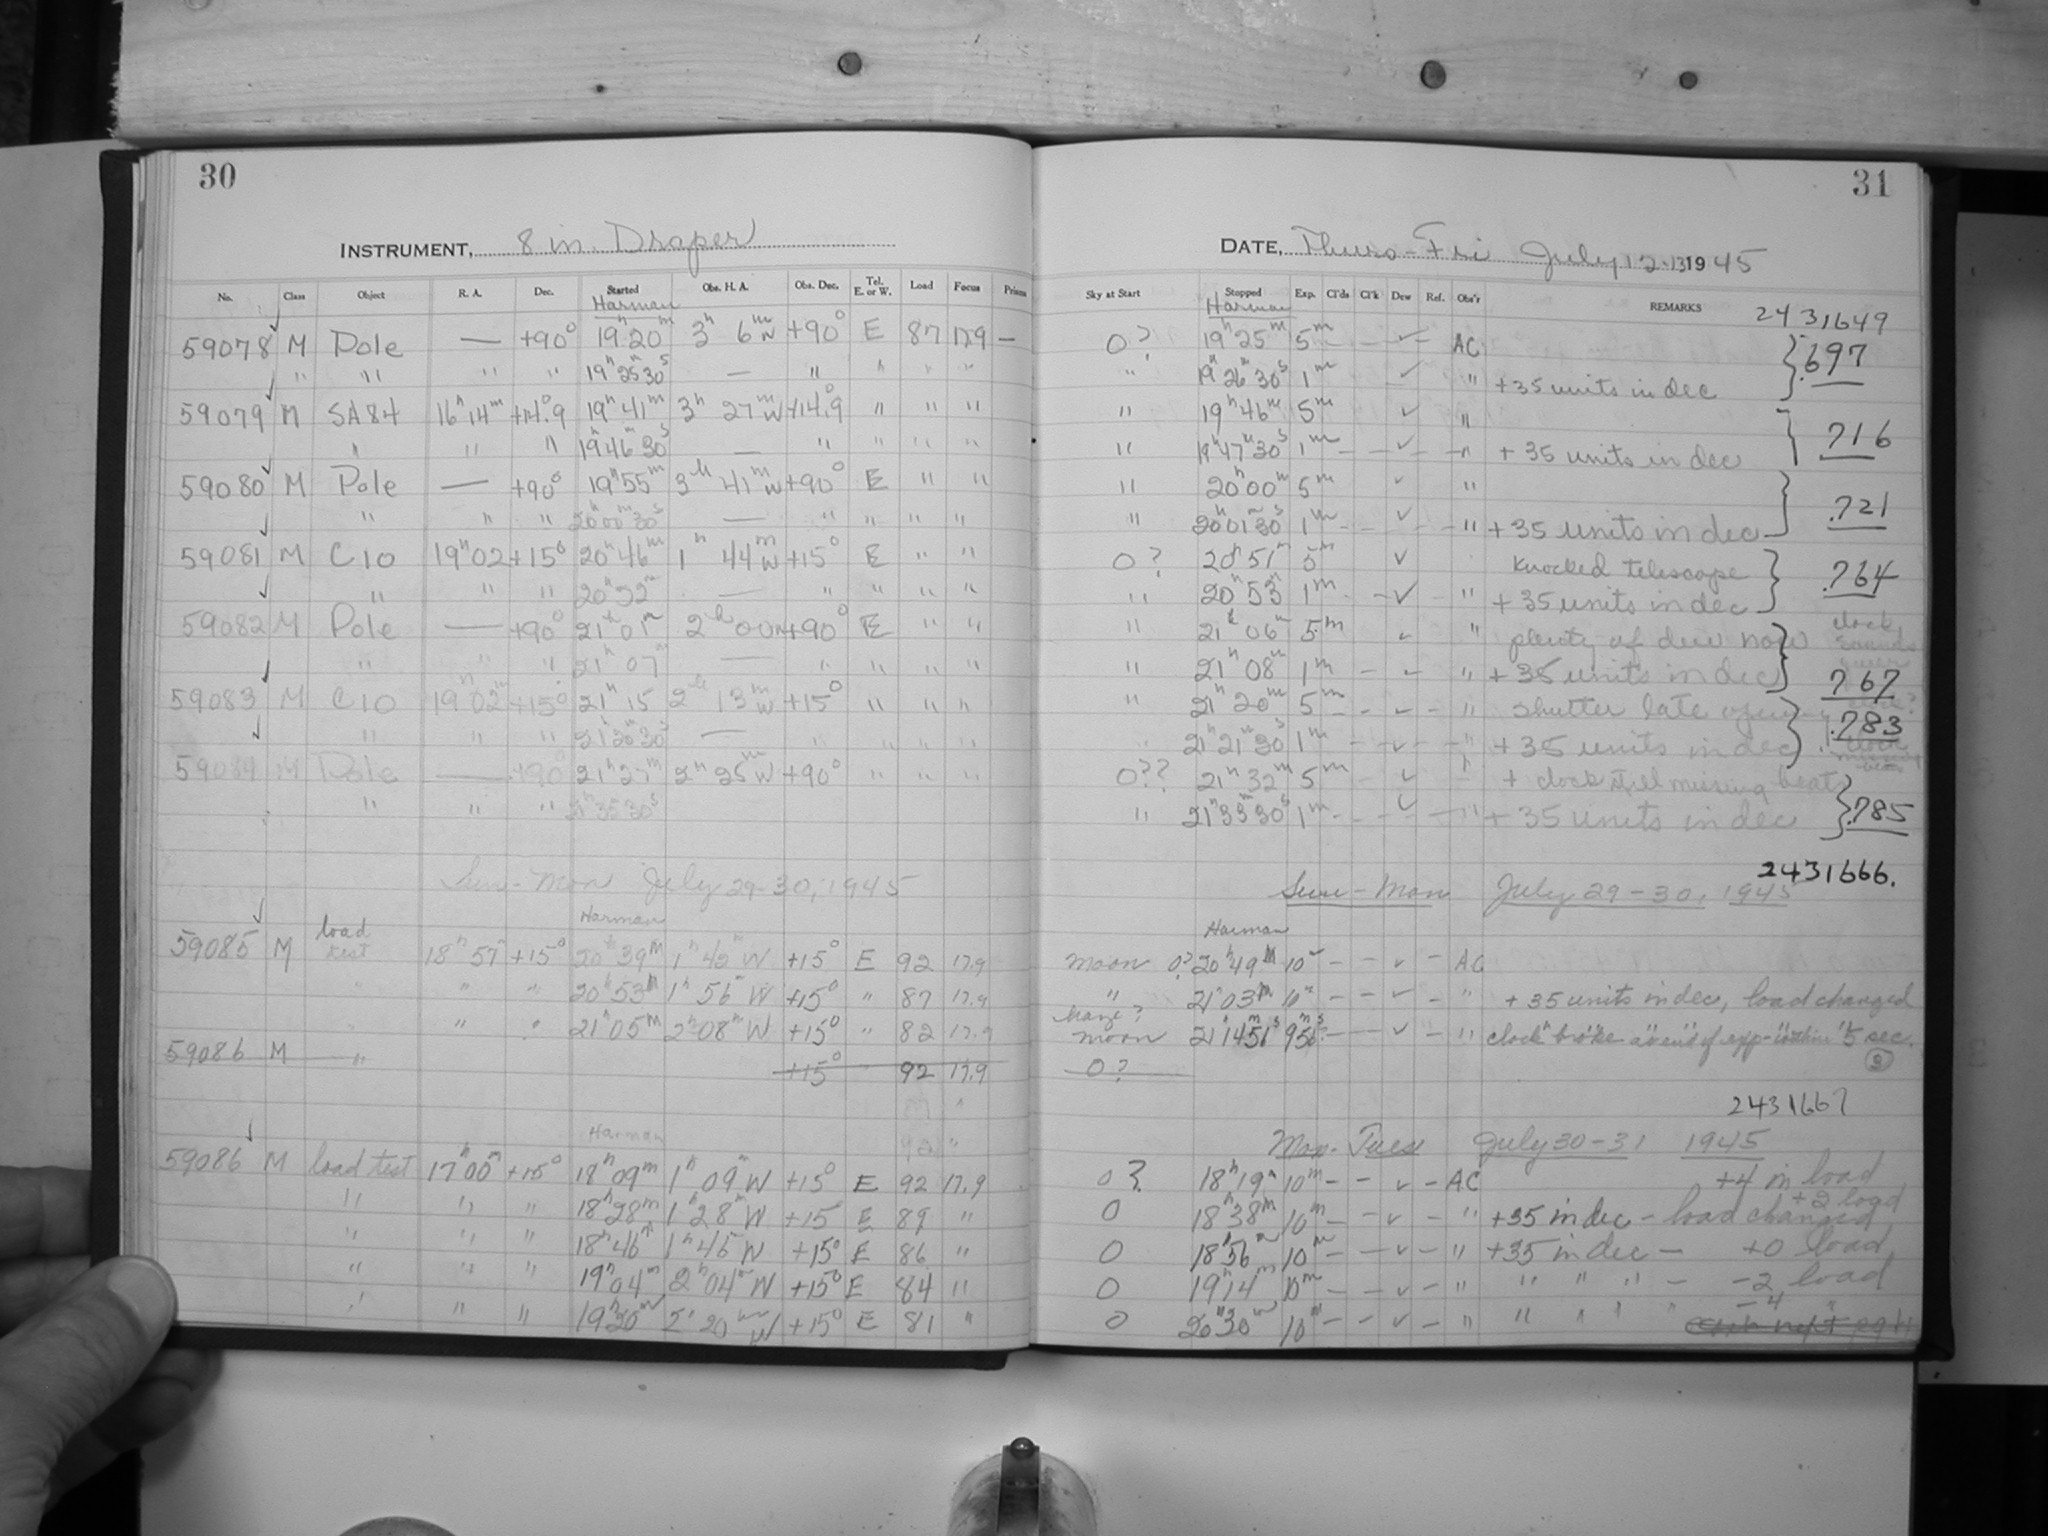 30
INSTRUMENT, 8 in. Draper
No. Class Object R. A. Dec. Started Obs. H. A. Obs. Dec. Tel. E. or W. Load Focus Prisms
Harman
59078 M Pole — +90° 19 20 3h 6m W +90° E 87 17.9 —
" " " " 19h 25m 30s — " " " "
59079 M SA84 16h 14m +14.9 19h 41m 3h 27m W +14.9 " " "
" " " 19 46 30s — " " " "
59080 M Pole — +90° 19h 55m 3h 41m W +90° E " "
" " " 20h 00m 30s — " " " "
59081 M C10 19h 02 +15° 20h 46m 1h 44m W +15° E " "
" " " 20h 52m — " " " "
59082 M Pole — +90° 21h 01m 2h 00m +90° E " "
" " " 21h 07m — " " " "
59083 M C10 19h 02m +15° 21h 15 2h 13m W +15° " " "
" " " 21h 20m 30s — " " " "
59084 M Pole — +90° 21h 27m 2h 25m W +90° " " "
" " "
Sun - Mon July 29-30, 1945
Harman
59085 M load test 18h 57m +15° 20h 39m 1h 42m W +15° E 92 17.9
" " " 20h 53m 1h 56m W +15° " 87 17.9
" " " 21h 05m 2h 08m W +15° " 82 17.9
59086 M "
+15° 92 17.9
Harman
92 "
59086 M load test 17h 00m +15° 18h 09m 1h 09m W +15° E 92 17.9
" " " 18h 28m 1h 28m W +15 E 89 "
" " " 18h 46m 1h 46m W +15° E 86 "
" " " 19h 04m 2h 04m W +15° E 84 "
" " " 19h 20m 2h 20m W +15° E 81 "
31
DATE, Thurs - Fri July 12-13 1945
Sky at Start Stopped Exp. Cl'ds Cl'k Dew Ref. Obs'r REMARKS
Harman 2431649
0? 19h 25m 5m - - ✓ - AC
" 19h 26m 30s 1m ✓ " +35 units in dec } .697
" 19h 46m 5m ✓ "
" 19h 47m 30s 1m - - ✓ - " +35 units in dec } .716
" 20h 00m 5m ✓ "
" 20h 01m 30s 1m - - ✓ - " +35 units in dec } .721
0? 20h 51m 5m ✓ knocked telescope
" 20h 53m 1m - - ✓ " +35 units in dec } .764
" 21h 06m 5m ✓ " plenty of dew now clock sounds
" 21h 08m 1m - ✓ - " +35 units in dec } .767
" 21h 20m 5m - - ✓ - " shutter late opening
" 21h 21m 30s 1m - - ✓ - " +35 units in dec } .783
0?? 21h 32m 5m - ✓ - " + clock still missing beat
" 21h 33m 30s 1m - - ✓ - " +35 units in dec } .785
2431666.
Sun - Mon July 29-30, 1945
Harman
moon 0? 20h 49m 10m - - ✓ - AC
" 21h 03m 10m - - ✓ - " +35 units in dec, load changed
haze? moon 21h 14m 51s 9m 56s - - ✓ - " clock broke at end of exp - within 5 sec.
0?
2431667
Mon - Tues July 30-31 1945
0? 18h 19m 10m - - ✓ - AC +4 in load
0 18h 38m 10m - - ✓ - " +35 in dec - load changed +2 load
0 18h 56m 10m - - ✓ - " +35 in dec - +0 load
0 19h 14m 10m - - ✓ - " " " " - -2 load
0 20h 30m 10m - - ✓ - " " " " " -4 "